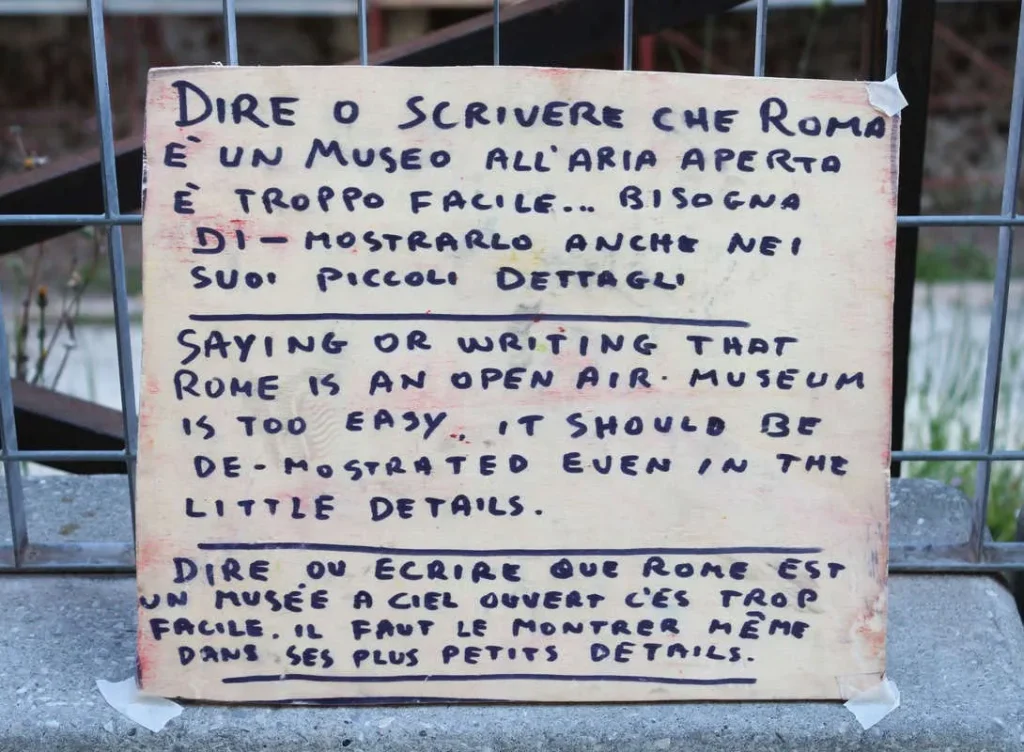 DIRE O SCRIVERE CHE ROMA
E' UN MUSEO ALL'ARIA APERTA
È TROPPO FACILE... BISOGNA
DI-MOSTRARLO ANCHE NEI
SUOI PICCOLI DETTAGLI
SAYING OR WRITING THAT
ROME IS AN OPEN AIR. MUSEUM
IS TOO EASY. IT SHOULD BE
DE-MOSTRATED EVEN IN THE
LITTLE DETAILS.
DIRE OU ECRIRE QUE ROME EST
UN MUSÉE A CIEL OUVERT C'ES TROP
FACILE. IL FAUT LE MONTRER MÊME
DANS SES PLUS PETITS DETAILS.